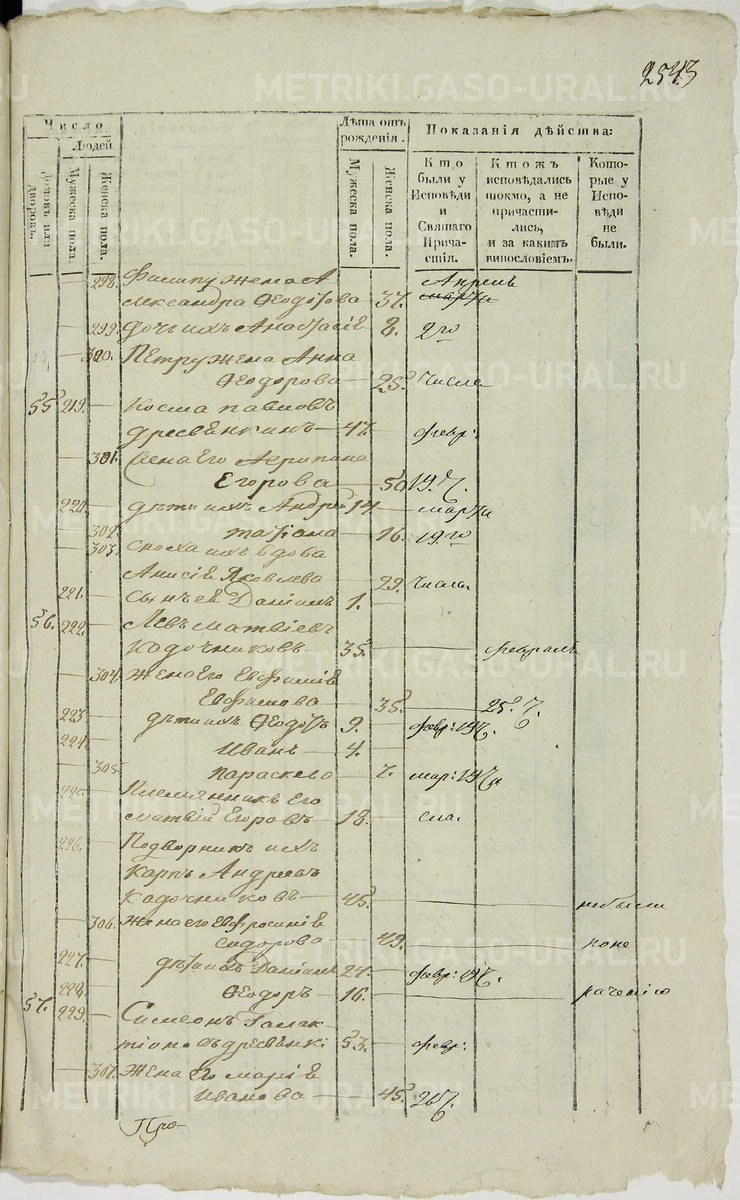 2543
Число
Людей
Домовъ или дворовъ.
Мужеска пола.
Женска пола.
Лѣта отъ рожденія.
Мужеска пола.
Женска пола.
Показанія дѣйства:
Кто были у Исповѣди и Святаго Причастія.
Ктожъ исповѣдались токмо, а не причастились, и за какимъ винословіемъ.
Которые у Исповѣди не были.
298. Филипу жена А Апрель
лександра Ѳеодотова 37. марта
299. дочь ихъ Анастасіѣ 8. 2го
300. Петру жена Анна
Ѳеодорова 25. числе
55 219. Косма павловъ
дресвѣнкинъ 47. февр:
301. жена Его Агрипина
Егорова 50 19. Ч.
220. дѣти ихъ Андрей 14. марта
302. татіана 16. 19го
303. сноха ихъ вдова
Анисіѣ Яковлева 29. числ.
221. сынъ ея Даніилъ 1.
56. 222. Левъ матвіевъ
Кадочниковъ 35. февраля
304. жена Его Евфиміѣ
Евфимова 35. 25. Ч.
223. дѣти ихъ Ѳеодотъ 9. февр: 19Ч.
224. Иванъ 4.
305. параскева 7. мар: 19Ч
225. Племянникъ Его
матвій Егоровъ 18. сла.
226. Подворникъ ихъ
Карпъ Андреевъ
Кадочниковъ 45. небыли
306. жена его Евфросиніѣ
сидорова 49. поне
227. дѣти ихъ Даніилъ 21. февр: 19Ч.
228. Ѳеодоръ 16. рачению
57. 229. Симеонъ Галак
тіоновъ дресвѣнки: 53. февр:
307. жена Его маріѣ
Иванова 45. 26Ч.
Про-
METRIKI.GASO-URAL.RU